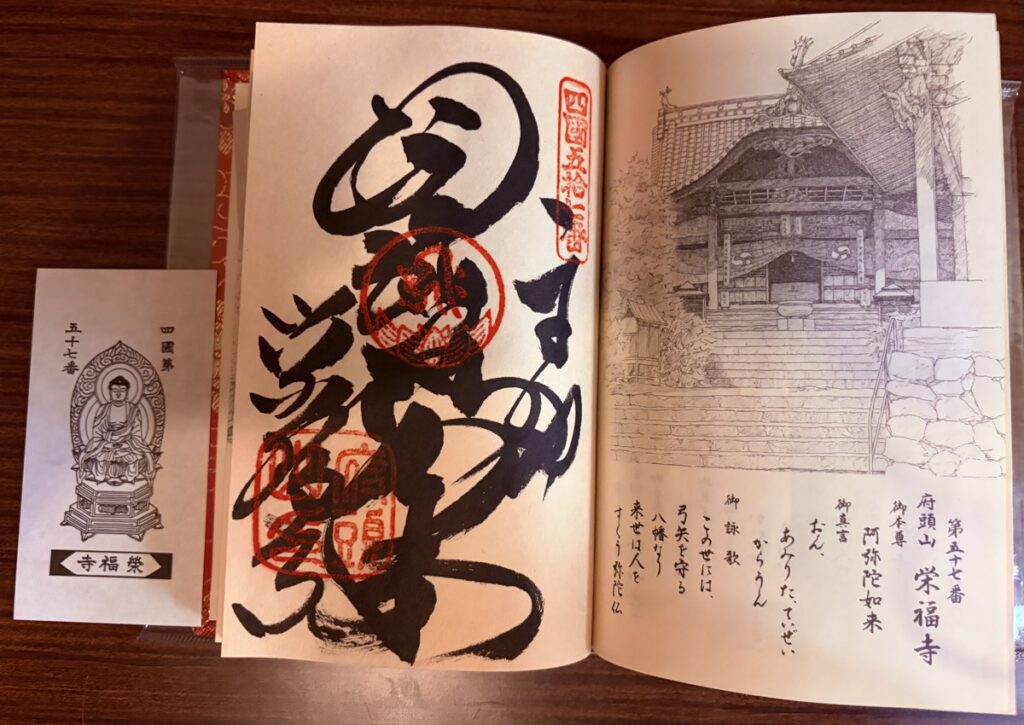 四國第
五十七番
榮福寺
四國五拾七番
第五十七番
府頭山 栄福寺
御本尊
阿弥陀如来
御真言
おん、
あみりた、ていぜい
からうん
御詠歌
この世には、
弓矢を守る
八幡なり
来世は人を
すくう弥陀仏